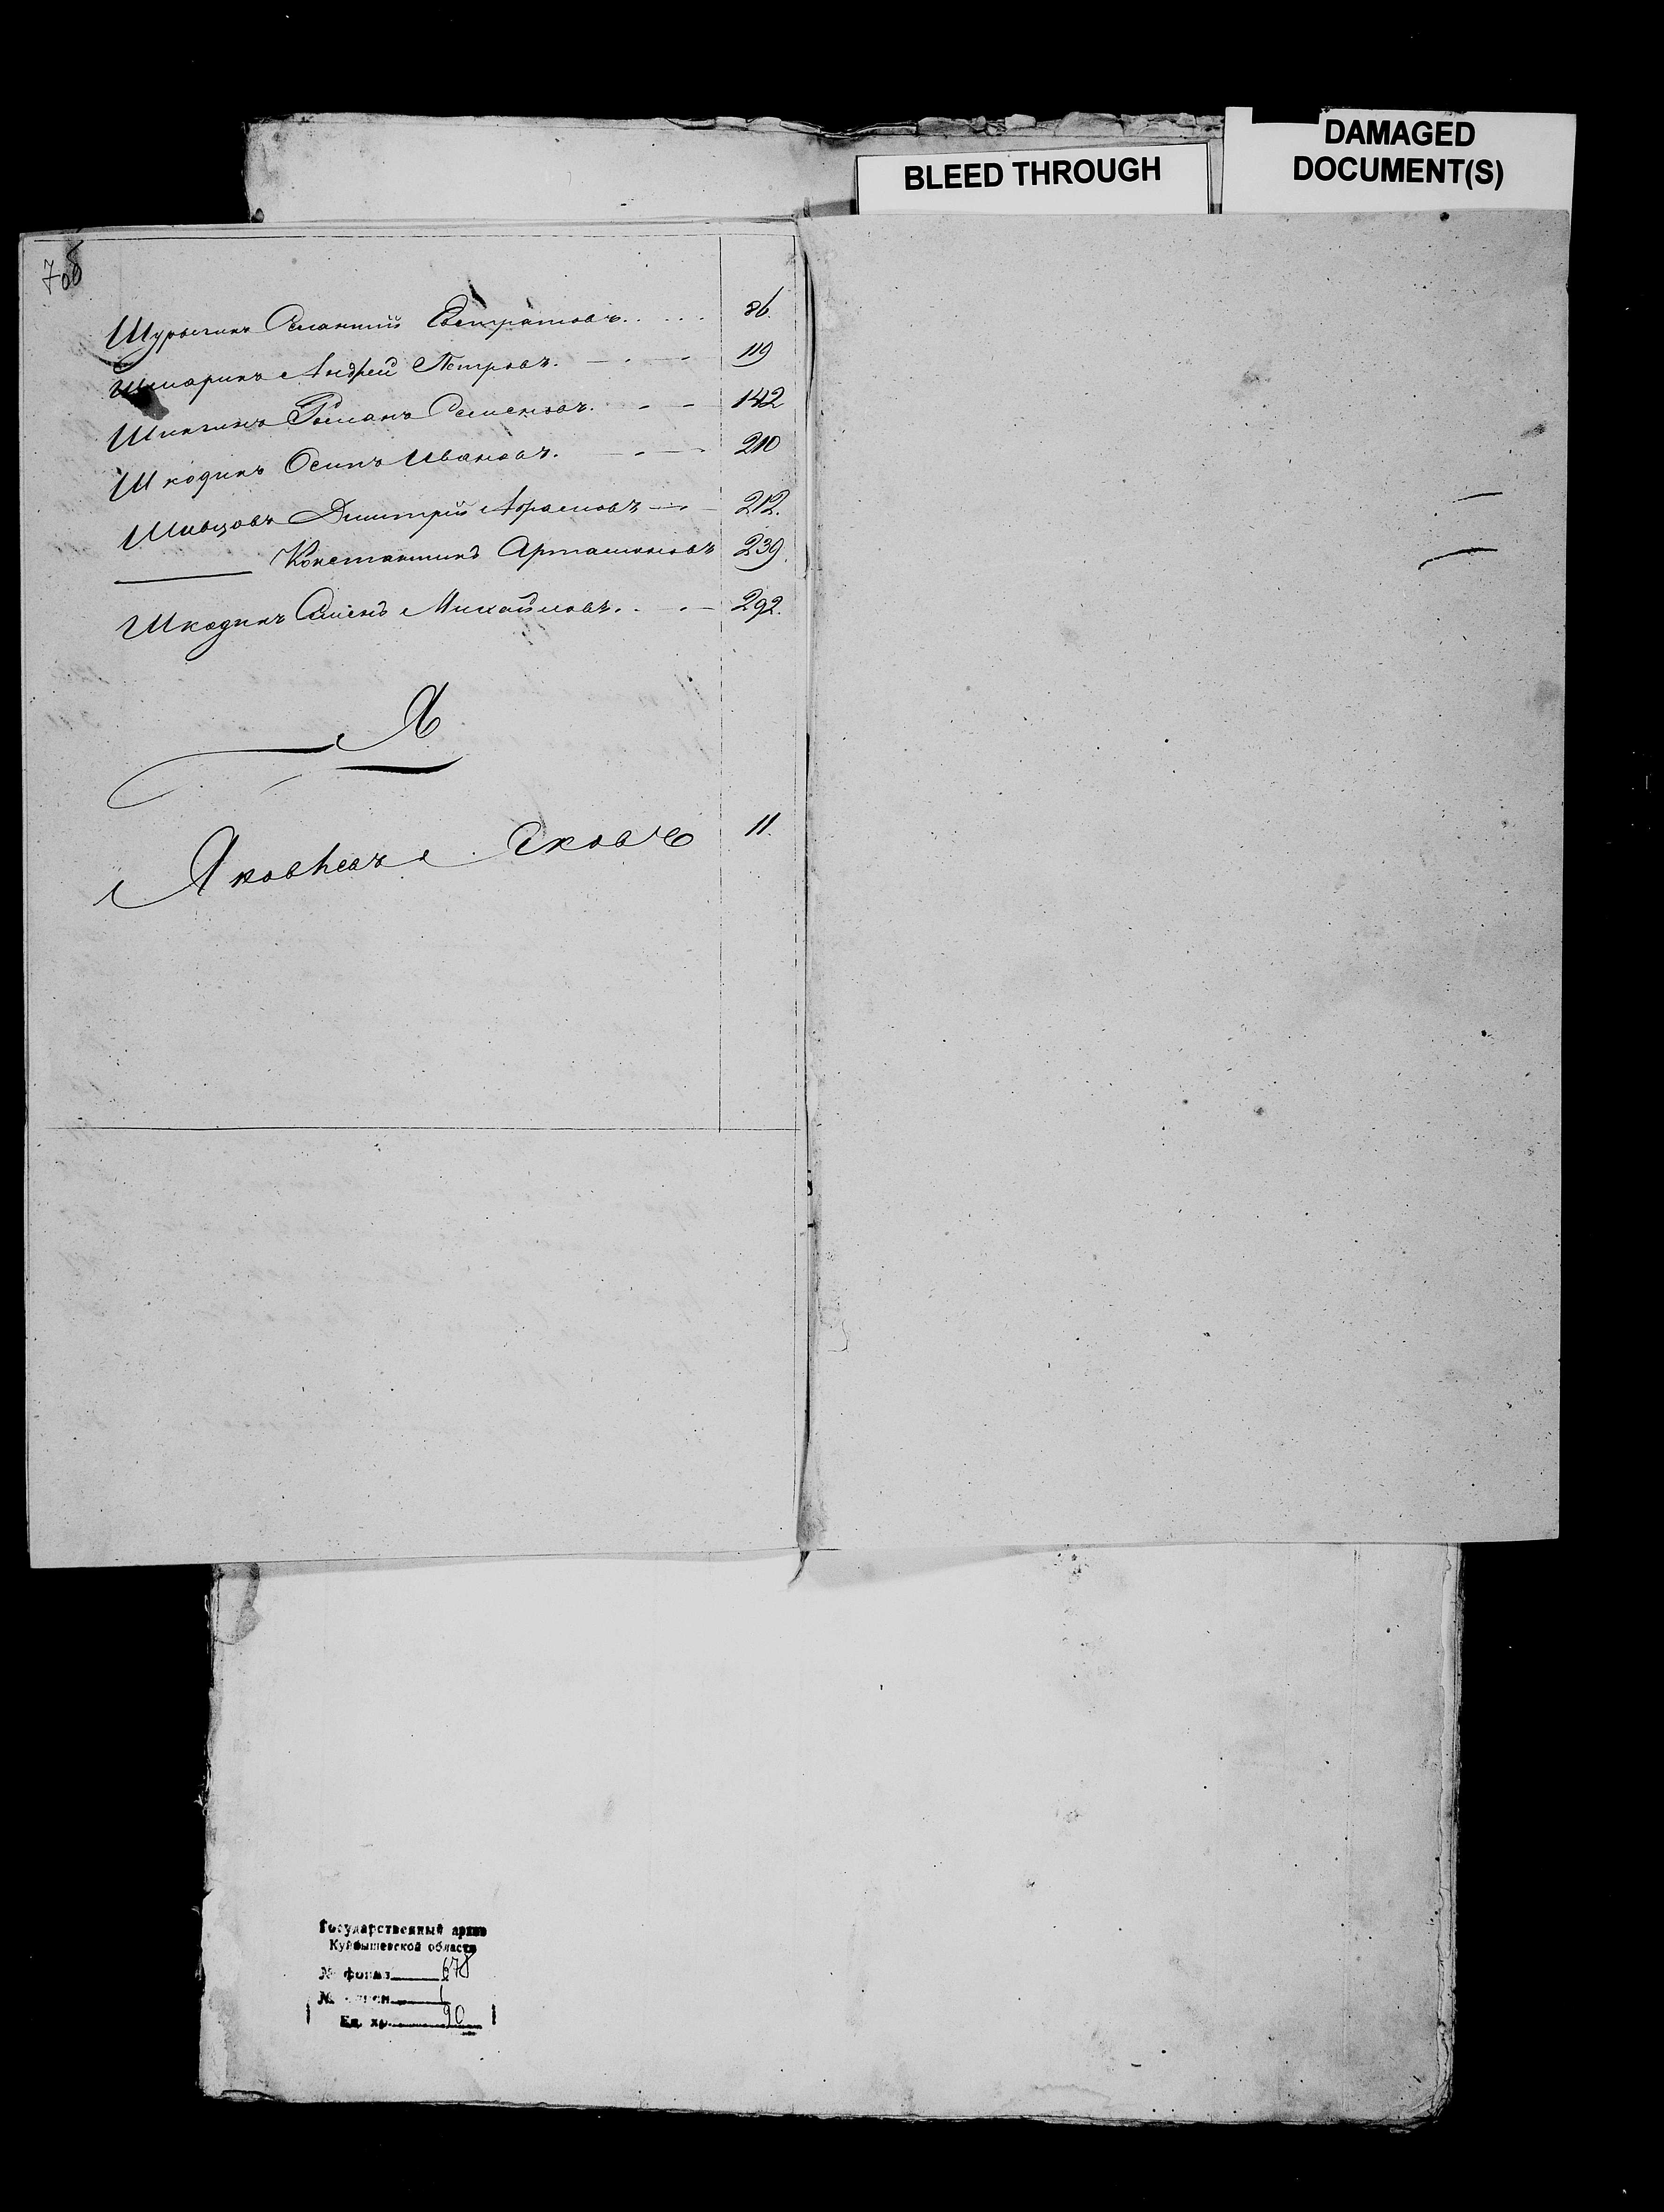 DAMAGED
DOCUMENT(S)
BLEED THROUGH
7об
Шурыгинъ Евстратовъ. . . . 86.
Шмаринъ Андрей Петровъ. — . — 119
Романъ Семеновъ. — — 142
Шкодинъ Осипъ Ивановъ. — . — 210
Шивцовъ Дмитрій Абрамовъ — . — 212.
—— Константинъ Артамоновъ 239.
Шкодинъ Семенъ Михайловъ. . — . — 292.
Я
Яковлевъ Яковъ 11.
Государственный архив
Куйбышевской области
№ фонда 678
№ описи 1
Ед. хр. 90